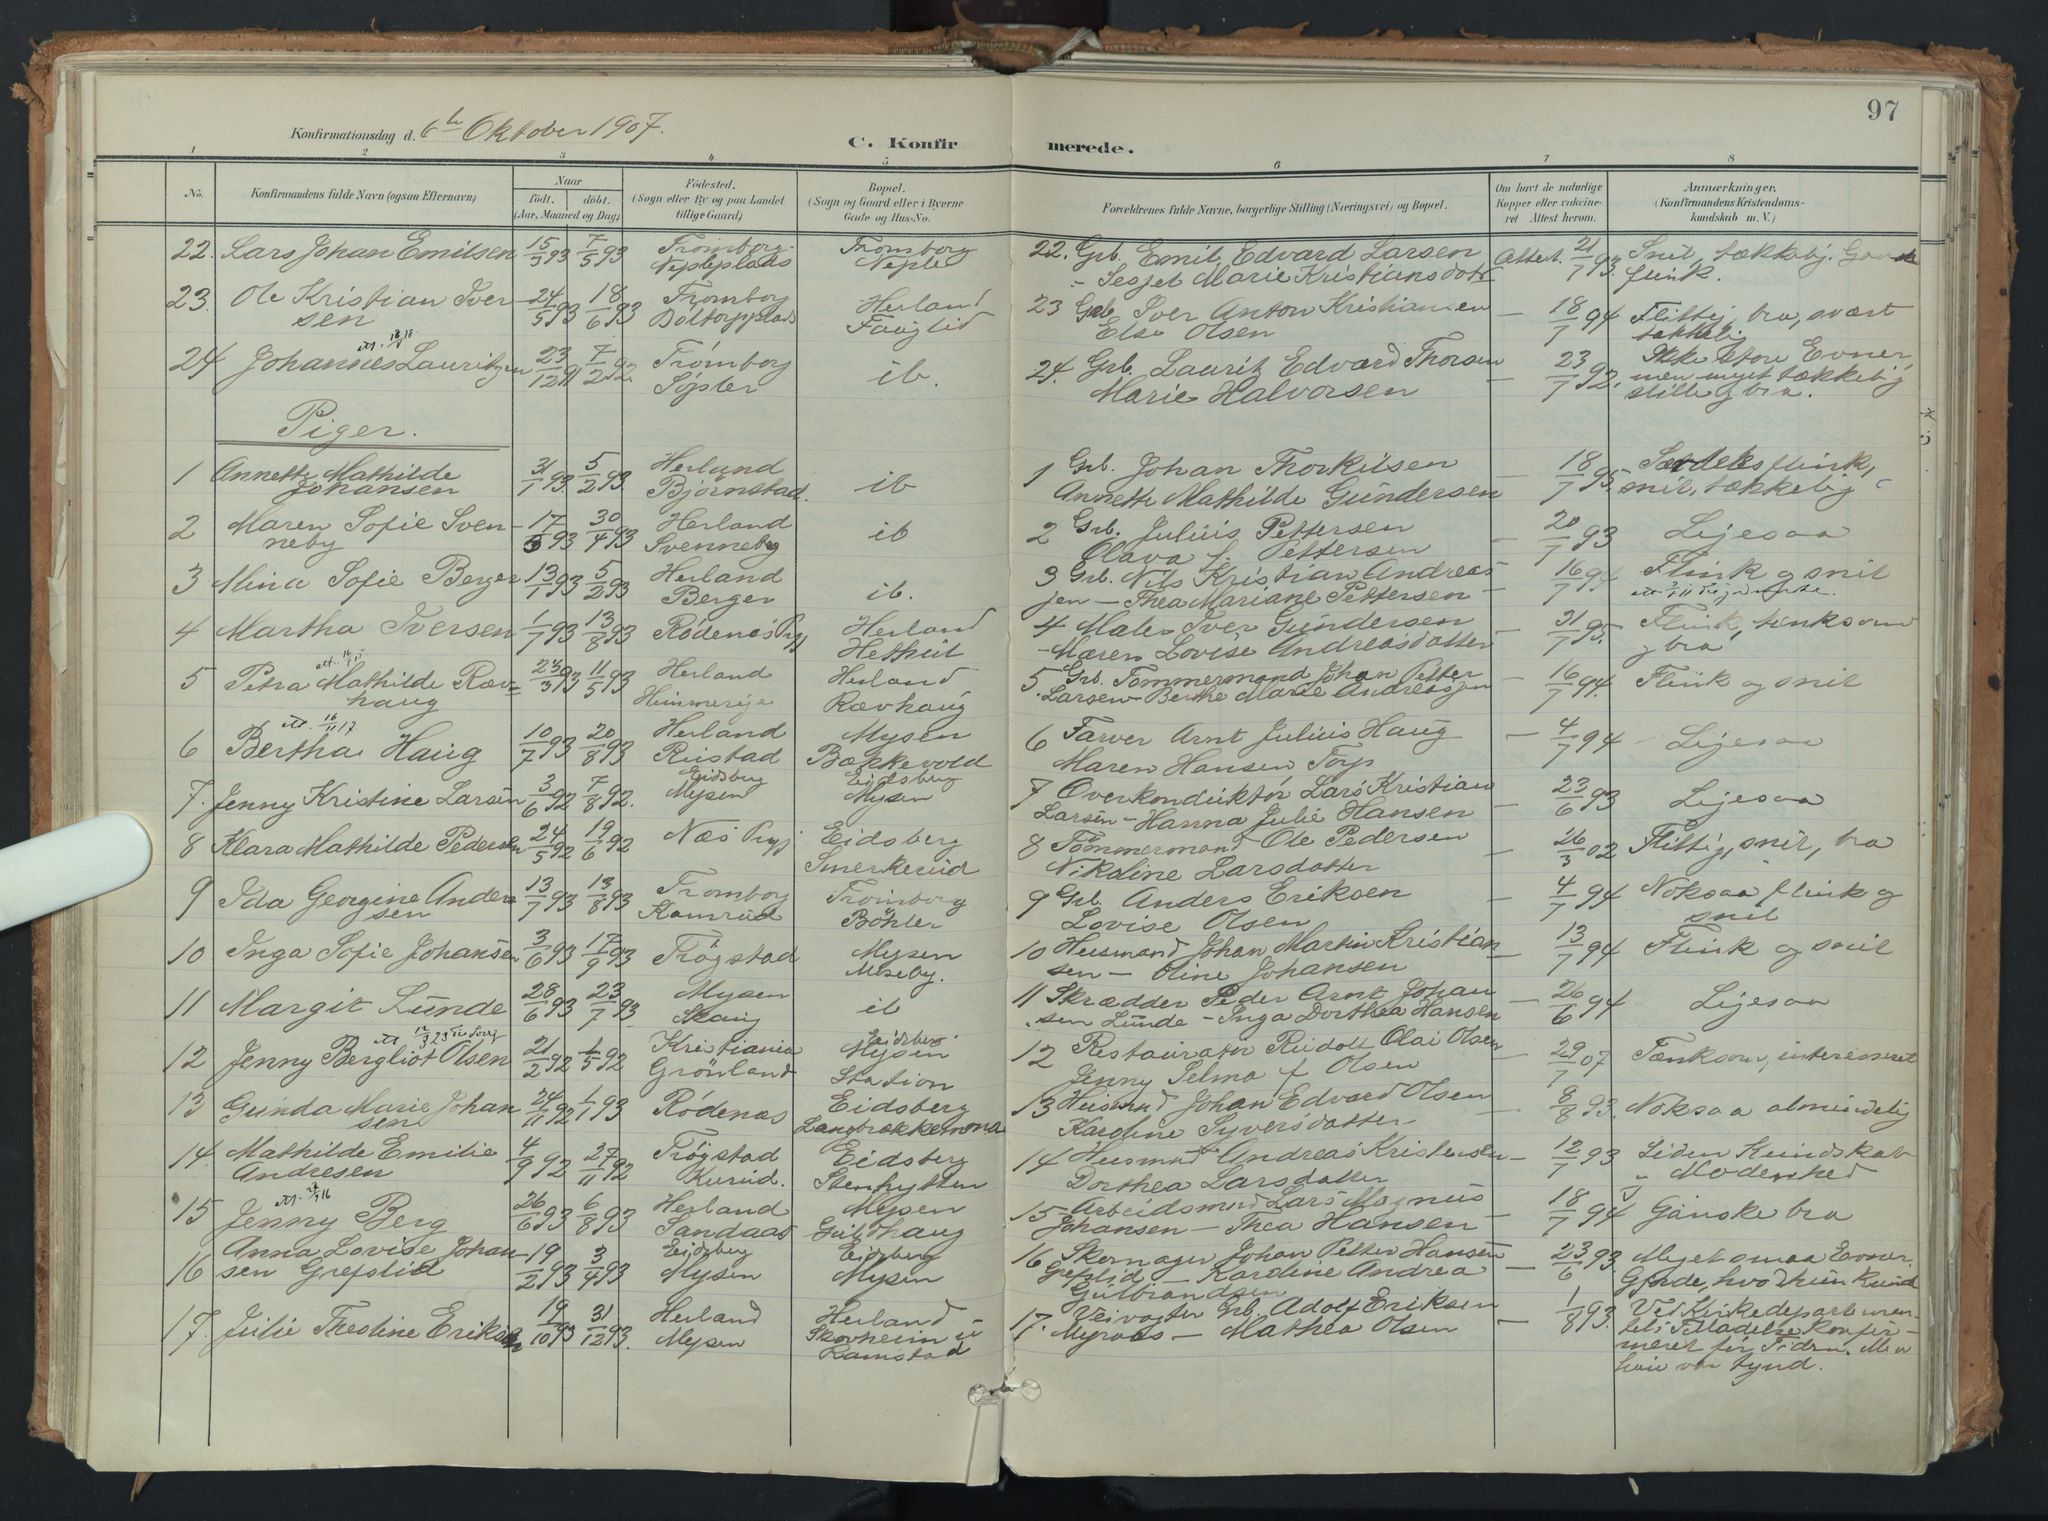 97
Konfirmationsdag d. 6te Oktober 1907.
C. Konfirmerede.
1 2 3 4 5 6 7 8
No. Konfirmandens fulde Navn (ogsaa Efternavn) Naar født. døbt. (Aar, Maaned og Dag) Fødested. (Sogn eller By og paa Landet tillige Gaard) Bopæl. (Sogn og Gaard eller i Byerne Gade og Hus-No. Forældrenes fulde Navne, borgerlige Stilling (Næringsvei) og Bopæl. Om havt de naturlige Kopper eller vaccineret Attest herom. Anmærkninger. (Konfirmandens Kristendomskundskab m. V.)
22. Lars Johan Emilsen 15/3 93 7/5 93 Trømborg Nepleplads Trømborg Neple 22. Grb. Emil Edvard Larsen
- Marie Kristiansdatt Attest. 21/7 93. Snil, tækkelig. Ganske flink.
23. Ole Kristian Iver-
sen 24/5 93 18/6 93 Trømborg Herland 23 Grb. Iver Anton Kristiansen
Else Olsen - 18/7 94 Flittig, bra, svært
tækkelig
24 Johannes Lauritzen 23/12 91 7/2 92. Trømborg ib. 24. Grb. Lauritz Edvard Thorsen
Marie Halvorsen - 23/7 92. Ikke store Evner,
men meget tækkelig
stille og bra.
Piger.
1 Annette Mathilde
Johansen 31/1 93. 5/2 93. Herland Bjørnstad. ib 1 Grb. Johan Thorkilsen
Annette Mathilde Gundersen - 18/7 95. Særdeles flink,
snil, tækkelig
2 Maren Sofie Sven-
neby 17/3 93 30/4 93 Herland Svenneby ib 2 Grb. Julius Pettersen
Olava f. Pettersen - 20/7 93 Ligesaa
3 Mina Sofie Berger 13/1 93 5/2 93 Herland Berger ib. 3 Grb. Nils Kristian Andreas
sen - Thea Mariane Pettersen - 16/7 94 Flink og snil
4 Martha Iversen 1/7 93 13/8 93 Rødenæs Prgj Herland 4 Maler Iver Gundersen
- Maren Lovise Andreasdatter - 31/7 95. Flink, tenksom
og bra
5 Petra Mathilde Ræv-
haug 23/3 93 11/5 93 Herland Herland Rævhaug 5 Grb. Tømmermand Johan Petter
Larsen - Berthe Marie Andreassen - 16/7 94. Flink og snil
att. 16/11 17
6 Bertha Haug 10/7 93 20/8 93 Herland Rustad Mysen Bækkevold 6 Farver Arnt Julius Haug
Maren Hansen Torp - 4/7 94 - Ligesaa
7. Jenny Kristine Larsen 3/6 92 7/8 92. Eidsberg Mysen Eidsberg Mysen 7 Overkonduktør Lars Kristian
Larsen - Hanna Julie Hansen - 23/6 93 Ligesaa
8 Klara Mathilde Pedersen 24/5 92 19/6 92 Næs Prgj Eidsberg Smerkerud 8 Tømmermand Ole Pedersen
Nikoline Larsdatter - 26/3 02 Flittig, snil, bra
9 Ida Georgine Ander
sen 13/7 93 13/8 93 Trømborg Kamrud Trømborg Bøhler 9 Grb. Anders Eriksen
Lovise Olsen - 4/7 94 Noksaa flink og
snil
10 Inga Sofie Johansen 3/6 93 17/9 93 Trøgstad Mysen Museby. 10 Husmand Johan Martin Kristian
sen - Oline Johansen - 13/7 94 Flink og snil
11 Margit Lunde 28/6 93 23/7 93 Mysen Skaug ib 11 Skrædder Peder Arnt Johan
sen Lunde - Inga Dorthea Hansen - 26/6 94 Ligesaa
12 Jenny Bergliot Olsen 21/2 92 1/5 92 Kristiania Grønland Eidsberg Mysen Station 12 Restauratør Rudolf Olai Olsen
Jenny Selma f Olsen - 29/7 07 Tænksom, interesseret
13 Gunda Marie Johan
sen 24/11 92 1/1 93 Rødenæs Eidsberg 13 Husmand Johan Edvard Olsen
Karoline Syversdatter - 8/8 93 Noksaa almindelig
14. Mathilde Emilie
Andresen 4/9 92 27/11 92 Trøgstad Kurud. Eidsberg Stenhytten 14 Husmand Andreas Kristensen
Dorthea Larsdatter - 12/7 93 Liden Kundskab
og Modenhed
15 Jenny Berg 26/6 93 6/8 93 Herland Sandaas Mysen Gulhaug 15 Arbeidsmand Lars Magnus
Johansen - Thea Hansen - 18/7 94 Ganske bra
16 Anna Lovise Johan-
sen Grefslid 19/2 93 3/4 93 Eidsberg Mysen Eidsberg Mysen 16 Skomager Johan Petter Hansen
Grefslid - Karoline Andrea
Gulbrandsen - 23/6 93. Meget smaa Evner.
Gjorde, hvad hun kunde
17. Julie Thestine Eriksen 19/10 93 31/12 93. Herland Mysen Herland Skovheim u Ramstad 17. Veivogter Grb. Adolf Eriksen
Myraas - Mathea Olsen - 1/8 93. Ved Kirkedepartemen-
tets Tilladelse konfir-
meret før Tiden. Men
hun var tynd.